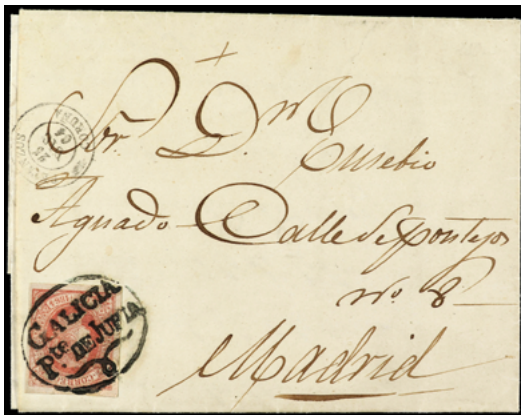 Sor. D.n
Eusebio
Aguado Calle de Pontejos
no. 8
Madrid
GALICIA
Pto DE JUBIA